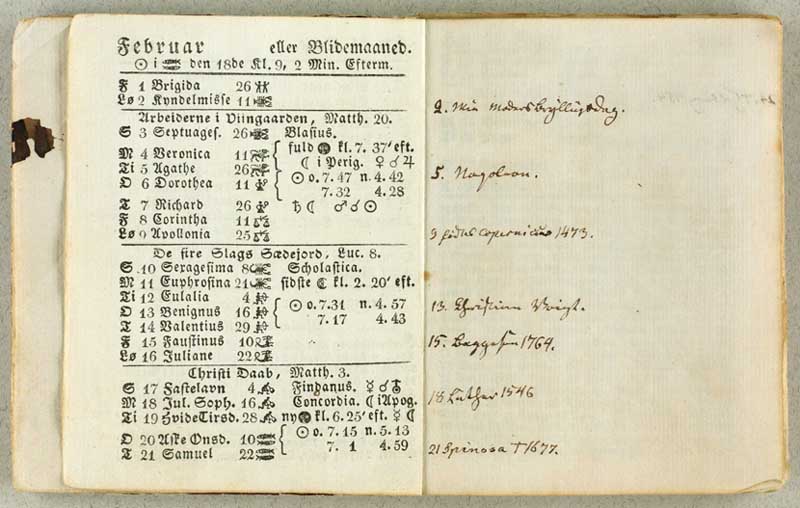 Februar eller Blidemaaned.
☉ i ♓ den 18de Kl. 9, 2 Min. Efterm.
F 1 Brigida 26
Lø 2 Kyndelmisse 11
Arbeiderne i Viingaarden, Matth. 20.
S 3 Septuages. 26 Blasius.
M 4 Veronica 11 fuld kl. 7. 37' eft.
Ti 5 Agathe 26 ☾ i Perig. ♀ ☌ ♃
O 6 Dorothea 11 ☉ o. 7. 47 n. 4. 42
7. 32 4. 28
T 7 Richard 26 ♄ ☾ ♂ ☌ ☉
F 8 Corintha 11
Lø 9 Apollonia 25
De fire Slags Sædejord, Luc. 8.
S. 10 Sexagesima 8 Scholastica.
M 11 Euphrosina 21 sidste ☾ kl. 2. 20' eft.
Ti 12 Eulalia 4
O 13 Benignus 16 ☉ o. 7. 31 n. 4. 57
T 14 Valentius 29 7. 17 4. 43
F 15 Faustinus 10
Lø 16 Juliane 22
Christi Daab, Matth. 3.
S 17 Fastelavn 4 Findanus. ☿ ☌
M 18 Jul. Soph. 16 Concordia. ☾ i Apog.
Ti 19 HvideTirsd. 28 ny kl. 6. 25' eft. ☿ ☾
O 20 Aske Onsd. 10 ☉ o. 7. 15 n. 5. 13
T 21 Samuel 22 7. 1 4. 59
2. Min Moders Bryllups Dag.
5. Napoleon.
9 fødtes Copernicus 1473.
13. Christian Voigt.
15. Baggesen 1764.
18 Luther 1546
21 Spinosa † 1677.